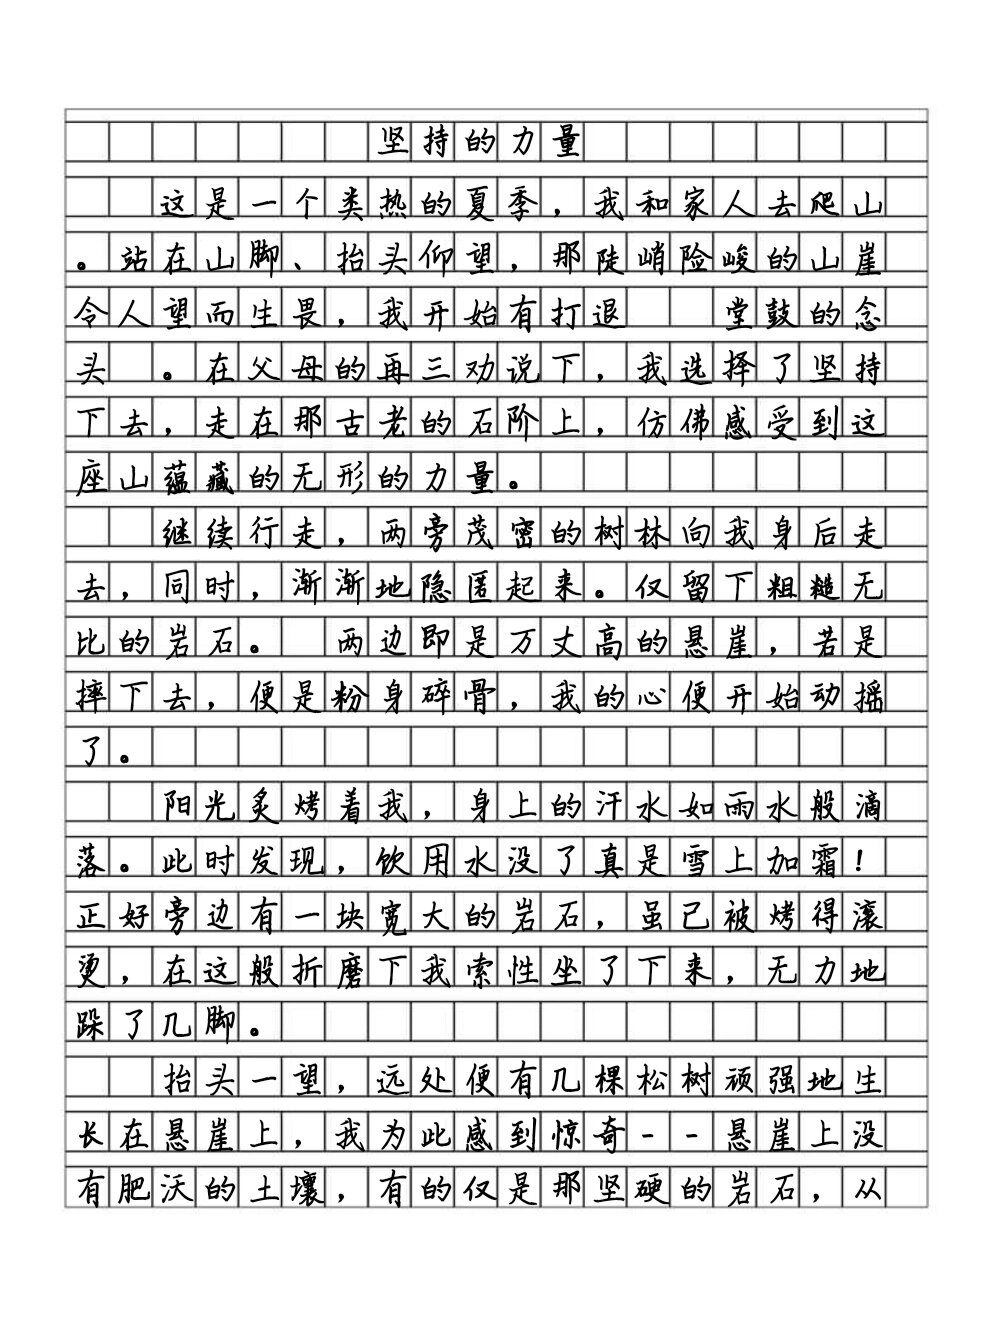 坚持的力量
这是一个类热的夏季，我和家人去爬山
。站在山脚、抬头仰望，那陡峭险峻的山崖
令人望而生畏，我开始有打退 堂鼓的念
头 。在父母的再三劝说下，我选择了坚持
下去，走在那古老的石阶上，仿佛感受到这
座山蕴藏的无形的力量。
继续行走，两旁茂密的树林向我身后走
去，同时，渐渐地隐匿起来。仅留下粗糙无
比的岩石。 两边即是万丈高的悬崖，若是
摔下去，便是粉身碎骨，我的心便开始动摇
了。
阳光炙烤着我，身上的汗水如雨水般滴
落。此时发现，饮用水没了真是雪上加霜！
正好旁边有一块宽大的岩石，虽已被烤得滚
烫，在这般折磨下我索性坐了下来，无力地
跺了几脚。
抬头一望，远处便有几棵松树顽强地生
长在悬崖上，我为此感到惊奇--悬崖上没
有肥沃的土壤，有的仅是那坚硬的岩石，从